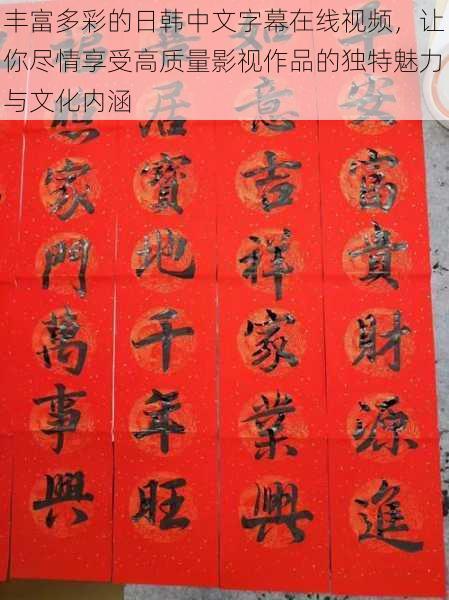 丰富多彩的日韩中文字幕在线视频，让
你尽情享受高质量影视作品的独特魅力
与文化内涵
平安富貴財源進
如意吉祥家業興
居寶地千年旺
福照家門萬事興